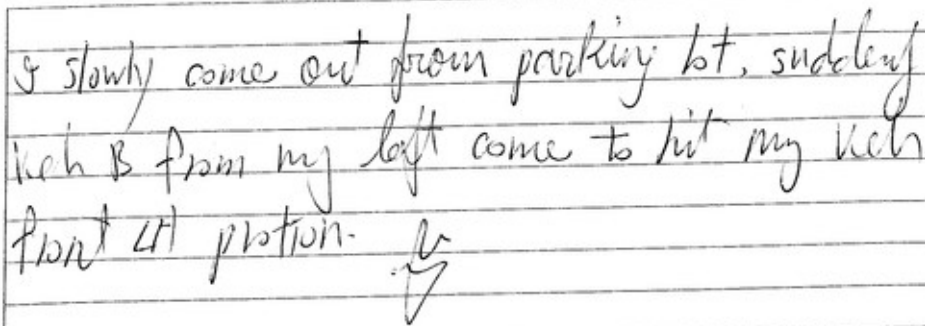 I slowly come out from parking lot, suddenly
veh B from my left come to hit my veh
front LH protion.